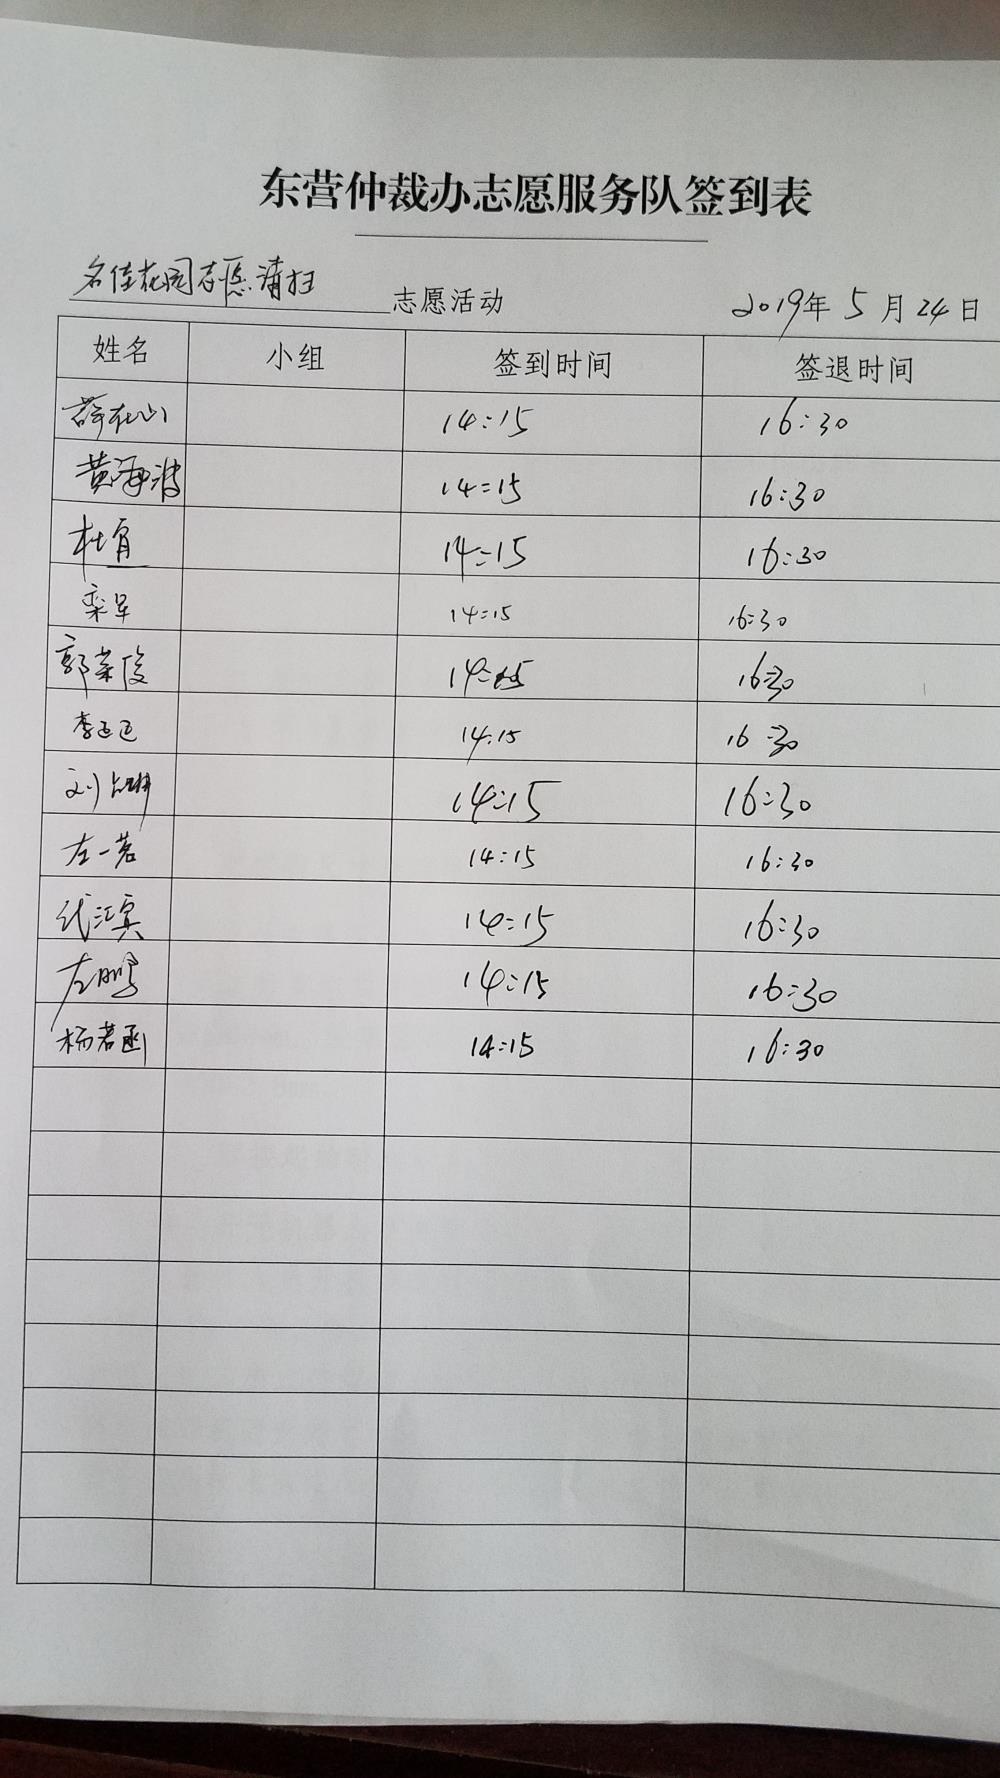 东营仲裁办志愿服务队签到表
名佳花园志愿清扫 志愿活动 2019年 5 月 24 日
姓名 小组 签到时间 签退时间
薛在山 14:15 16:30
黄海波 14:15 16:30
杜 14:15 16:30
栾早 14:15 16:30
郭荣俊 14:15 16:30
李 14:15 16:30
刘 14:15 16:30
左一茗 14:15 16:30
代江宾 14:15 16:30
左鹏 14:15 16:30
杨若函 14:15 16:30